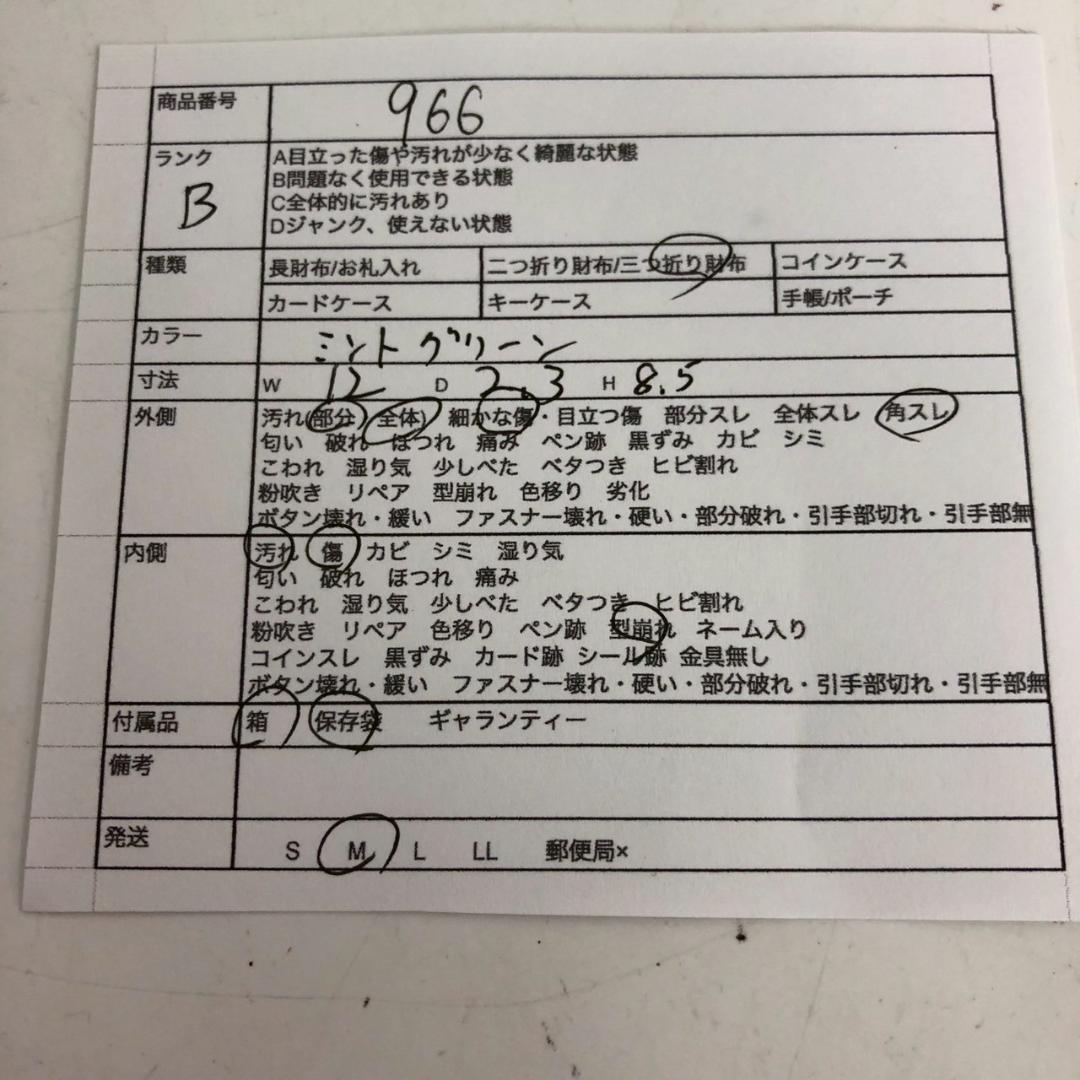 商品番号 966
ランク B
A目立った傷や汚れが少なく綺麗な状態
B問題なく使用できる状態
C全体的に汚れあり
Dジャンク、使えない状態
種類 長財布/お札入れ 二つ折り財布/三つ折り財布 コインケース
カードケース キーケース 手帳/ポーチ
カラー ミントグリーン
寸法 W 12 D 2.3 H 8.5
外側 汚れ(部分 全体) 細かな傷・目立つ傷 部分スレ 全体スレ 角スレ
匂い 破れ ほつれ 痛み ペン跡 黒ずみ カビ シミ
こわれ 湿り気 少しべた ベタつき ヒビ割れ
粉吹き リペア 型崩れ 色移り 劣化
ボタン壊れ・緩い ファスナー壊れ・硬い・部分破れ・引手部切れ・引手部無
内側 汚れ 傷 カビ シミ 湿り気
匂い 破れ ほつれ 痛み
こわれ 湿り気 少しべた ベタつき ヒビ割れ
粉吹き リペア 色移り ペン跡 型崩れ ネーム入り
コインスレ 黒ずみ カード跡 シール跡 金具無し
ボタン壊れ・緩い ファスナー壊れ・硬い・部分破れ・引手部切れ・引手部無
付属品 箱 保存袋 ギャランティー
備考
発送 S M L LL 郵便局×